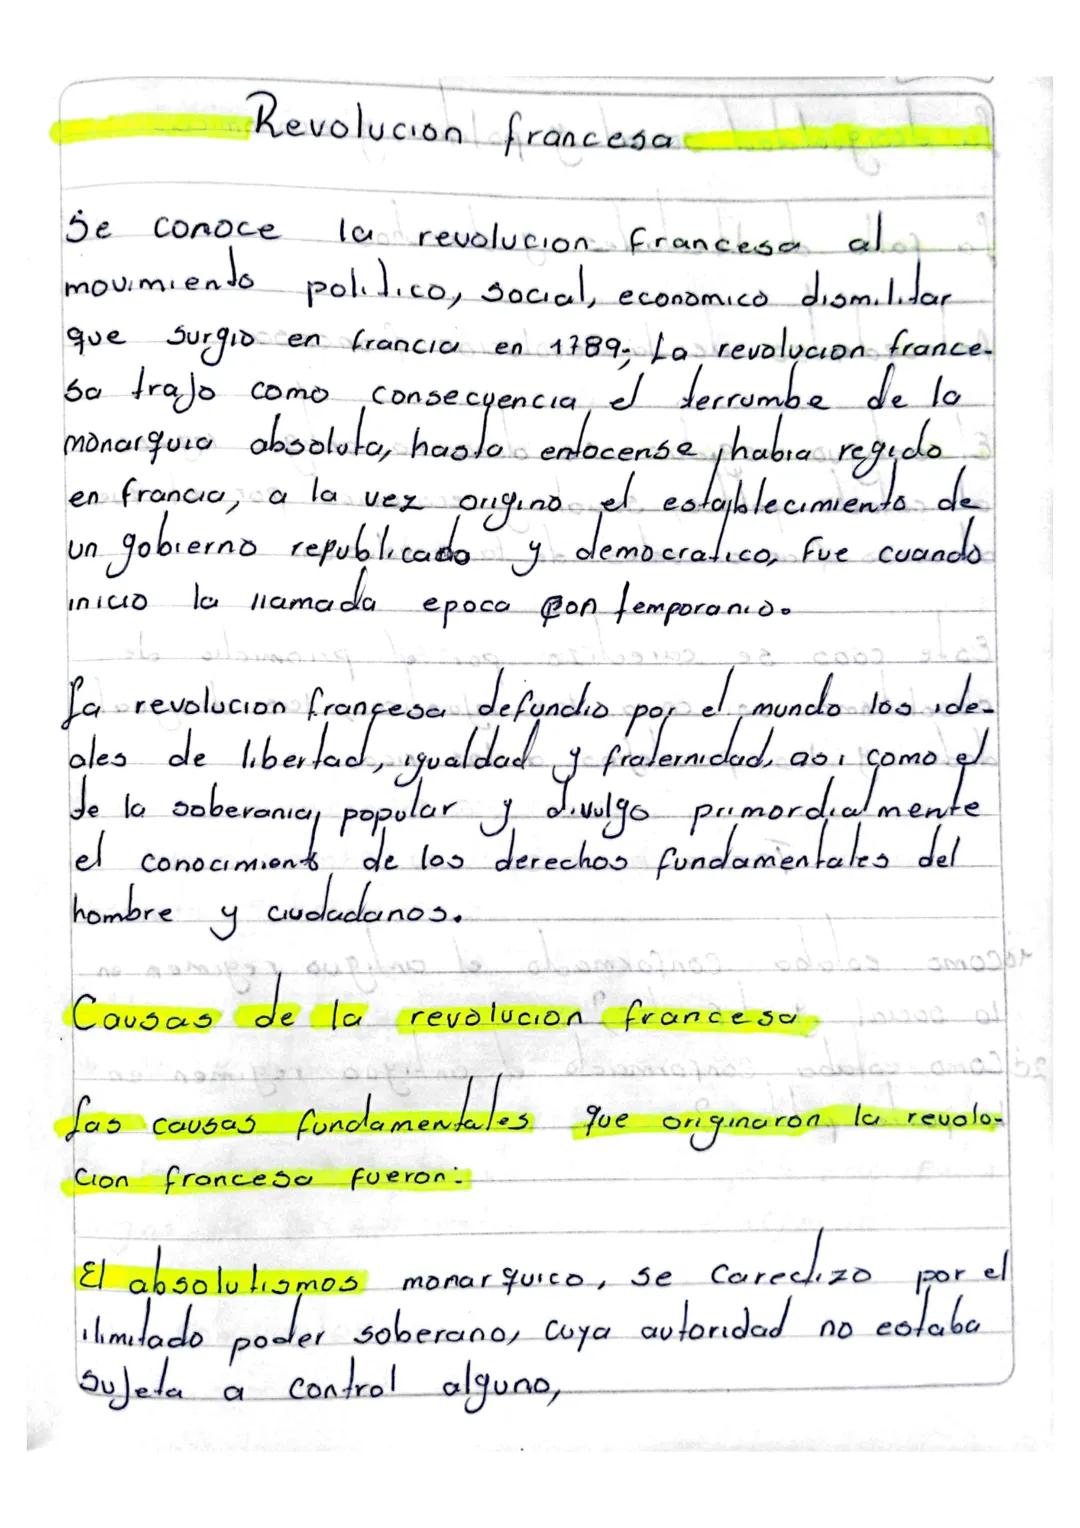 Revolucion francesa
Se conoce la revolucion francesa al
movimiento politico, social, economico dismilitar
que surgio en francia en 1789; La revolucion france-
sa trajo como consecuencia el derrumbe de la
monarquia absoluta, hasta entocense habia regido
en francia, a la vez origino el establecimiento de
un gobierno republicado y democratico, Fue cuando
inicio la llamada epoca contemporanio.
La revolucion francesa defundio por el mundo los ide-
ales de libertad, igualdad y fraternidad, asi como el
de la soberania, popular y divulgo primordialmente
el conocimiento de los derechos fundamentales del
hombre y ciudadanos.
Causas de la revolucion francesa
Las causas fundamentales que originaron la revolo-
cion francesa fueron:
El absolutismos monarquico, se carectizo por el
ilimitado poder soberano, cuya autoridad no estaba
sujeta a control alguno,